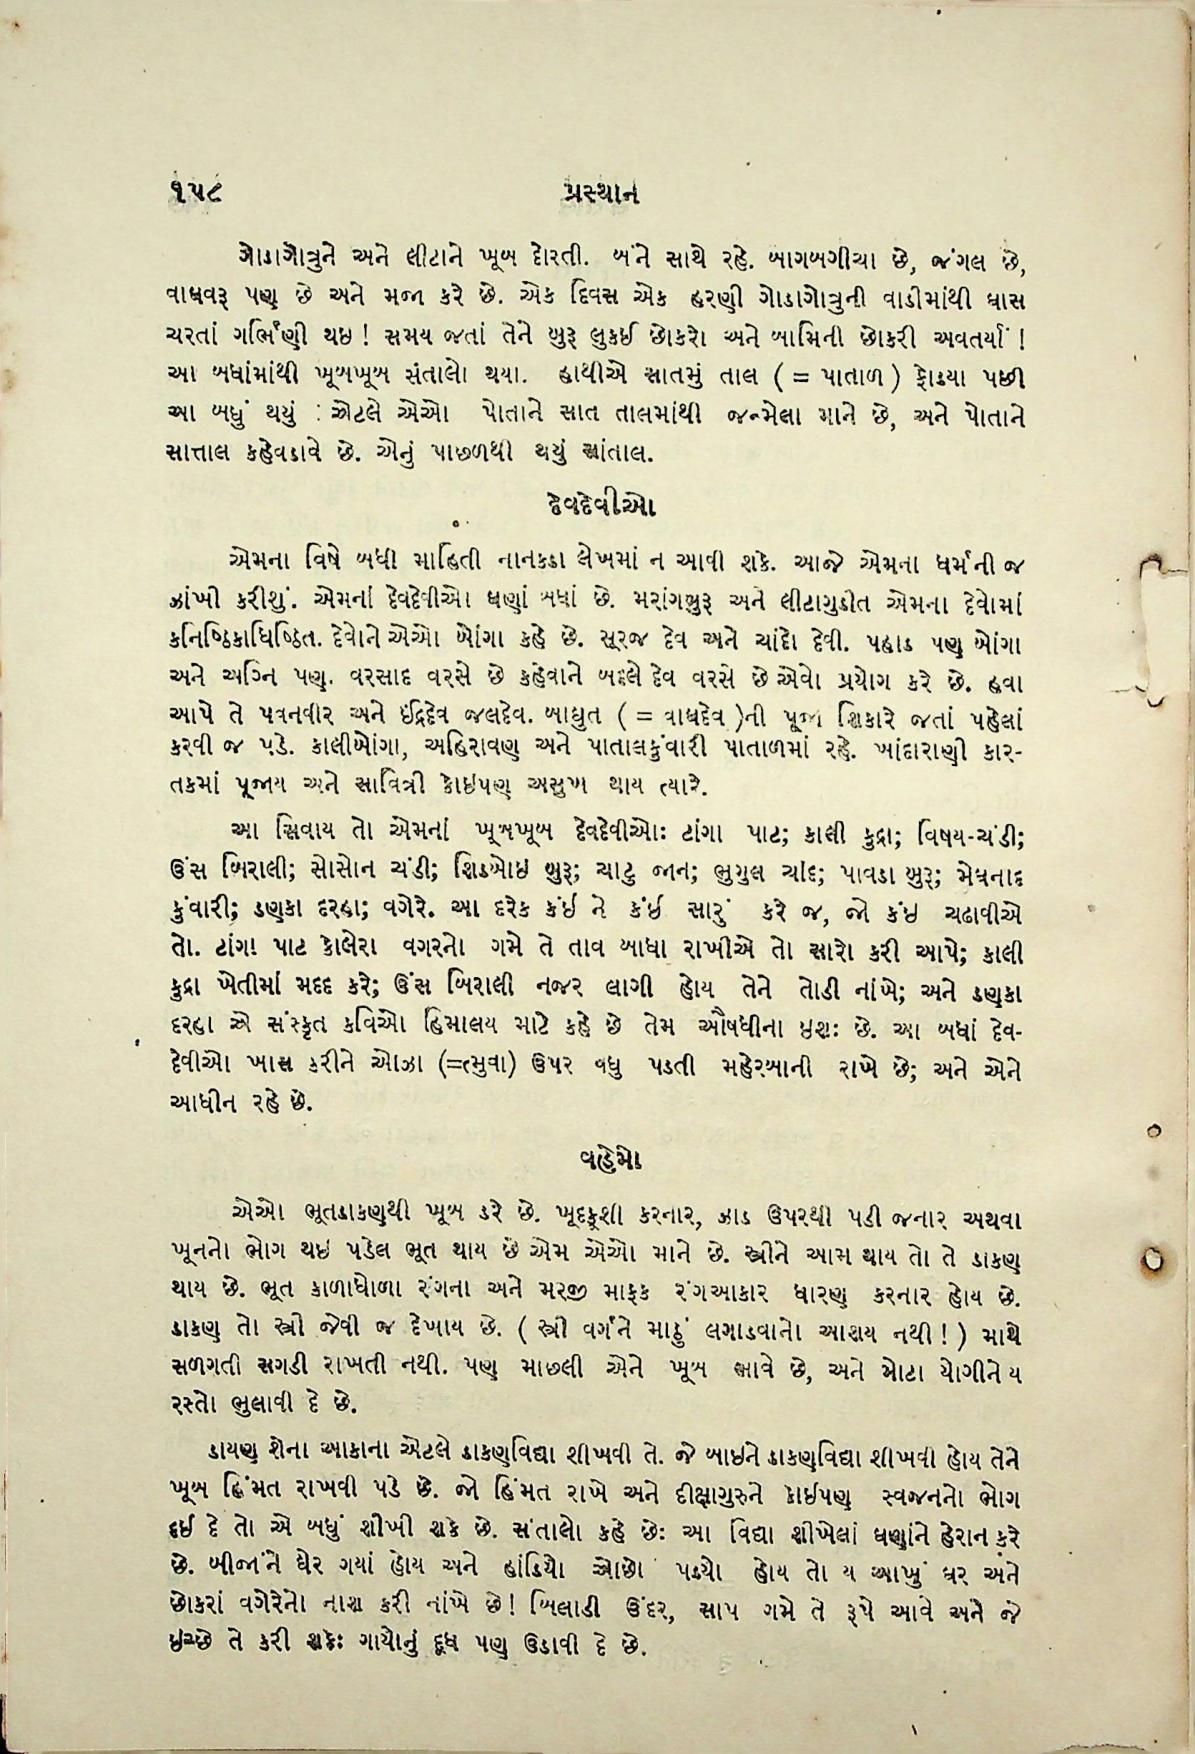 ૧૫૮
પ્રસ્થાન
ગોડાગોત્રુને અને લીટાને ખૂબ દોરતી. બંને સાથે રહે. બાગબગીચા છે, જંગલ છે,
વાઘવરૂ પણ છે અને મજા કરે છે. એક દિવસ એક હરણી ગોડાગોત્રુની વાડીમાંથી ઘાસ
ચરતાં ગર્ભિણી થઇ! સમય જતાં તેને બુરૂ લુકઈ છોકરો અને બામિની છોકરી અવતર્યાં!
આ બધાંમાંથી ખૂબખૂબ સંતાલો થયા. હાથીએ સાતમું તાલ ( = પાતાળ ) ફોડ્યા પછી
આ બધું થયું : એટલે એઓ પોતાને સાત તાલમાંથી જન્મેલા માને છે, અને પોતાને
સાત્તાલ કહેવડાવે છે. એનું પાછળથી થયું સાંતાલ.
દેવદેવીઓ
એમના વિષે બધી માહિતી નાનકડા લેખમાં ન આવી શકે. આજે એમના ધર્મની જ
ઝાંખી કરીશું. એમનાં દેવદેવીઓ ઘણાં બધાં છે. મરાંગબુરૂ અને લીટાગુડીત એમના દેવોમાં
કનિષ્ઠિકાધિષ્ઠિત. દેવોને એઓ બોંગા કહે છે. સૂરજ દેવ અને ચાંદો દેવી. પહાડ પણ બોંગા
અને અગ્નિ પણ. વરસાદ વરસે છે કહેવાને બદલે દેવ વરસે છે એવો પ્રયોગ કરે છે. હવા
આપે તે પવનવીર અને ઇંદ્રદેવ જલદેવ. બાઘુત ( = વાઘદેવ )ની પૂજા શિકારે જતાં પહેલાં
કરવી જ પડે. કાલીબોંગા, અહિરાવણ અને પાતાલકુંવારી પાતાળમાં રહે. ખાંદારાણી કાર-
તકમાં પૂજાય અને સાવિત્રી કોઇપણ અસુખ થાય ત્યારે.
આ સિવાય તો એમનાં ખૂબખૂબ દેવદેવીઓ: ટાંગા પાટ; કાલી કુદ્રા; વિષય-ચંડી;
ઉંસ બિરાલી; સોસોન ચંડી; શિડબોઇ બુરૂ; ચાટુ જાન; ભુગુલ ચાંદ; પાવડા બુરૂ; મેઘનાદ
કુંવારી; ડણકા દરહા; વગેરે. આ દરેક કંઈ ને કંઈ સારું કરે જ, જો કંઇ ચઢાવીએ
તો. ટાંગા પાટ કોલેરા વગરનો ગમે તે તાવ બાધા રાખીએ તો સારો કરી આપે; કાલી
કુદ્રા ખેતીમાં મદદ કરે; ઉંસ બિરાલી નજર લાગી હોય તેને તોડી નાંખે; અને ડણકા
દરહા એ સંસ્કૃત કવિઓ હિમાલય માટે કહે છે તેમ ઔષધીના ઇશ: છે. આ બધાં દેવ-
દેવીઓ ખાસ કરીને ઓઝા (=ભુવા) ઉપર વધુ પડતી મહેરબાની રાખે છે; અને એને
આધીન રહે છે.
વહેમો
એઓ ભૂતડાકણથી ખૂબ ડરે છે. ખૂદકૂશી કરનાર, ઝાડ ઉપરથી પડી જનાર અથવા
ખૂનનો ભોગ થઇ પડેલ ભૂત થાય છે એમ એઓ માને છે. સ્ત્રીને આમ થાય તો તે ડાકણ
થાય છે. ભૂત કાળાધોળા રંગના અને મરજી માફક રંગઆકાર ધારણ કરનાર હોય છે.
ડાકણ તો સ્ત્રી જેવી જ દેખાય છે. ( સ્ત્રી વર્ગને માઠું લગાડવાનો આશય નથી! ) માથે
સળગતી સગડી રાખતી નથી. પણ માછલી એને ખૂબ ભાવે છે, અને મોટા યોગીને ય
રસ્તો ભુલાવી દે છે.
ડાયણ શેના આકાના એટલે ડાકણવિદ્યા શીખવી તે. જે બાઇને ડાકણવિદ્યા શીખવી હોય તેને
ખૂબ હિંમત રાખવી પડે છે. જો હિંમત રાખે અને દીક્ષાગુરુને કોઇપણ સ્વજનનો ભોગ
દઈ દે તો એ બધું શીખી શકે છે. સંતાલો કહે છે: આ વિદ્યા શીખેલાં ઘણાંને હેરાન કરે
છે. બીજાંને ઘેર ગયાં હોય અને હાંડિયો ઓછો પડ્યો હોય તો ય આખું ઘર અને
છોકરાં વગેરેનો નાશ કરી નાંખે છે! બિલાડી ઉંદર, સાપ ગમે તે રૂપે આવે અને જે
ઇચ્છે તે કરી શકે: ગાયોનું દૂધ પણ ઉડાવી દે છે.